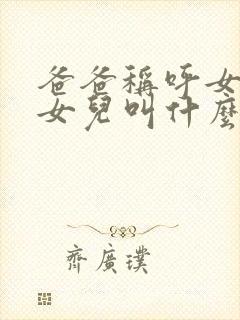 爸爸稱呼女
女兒叫什麼
齊廣璞